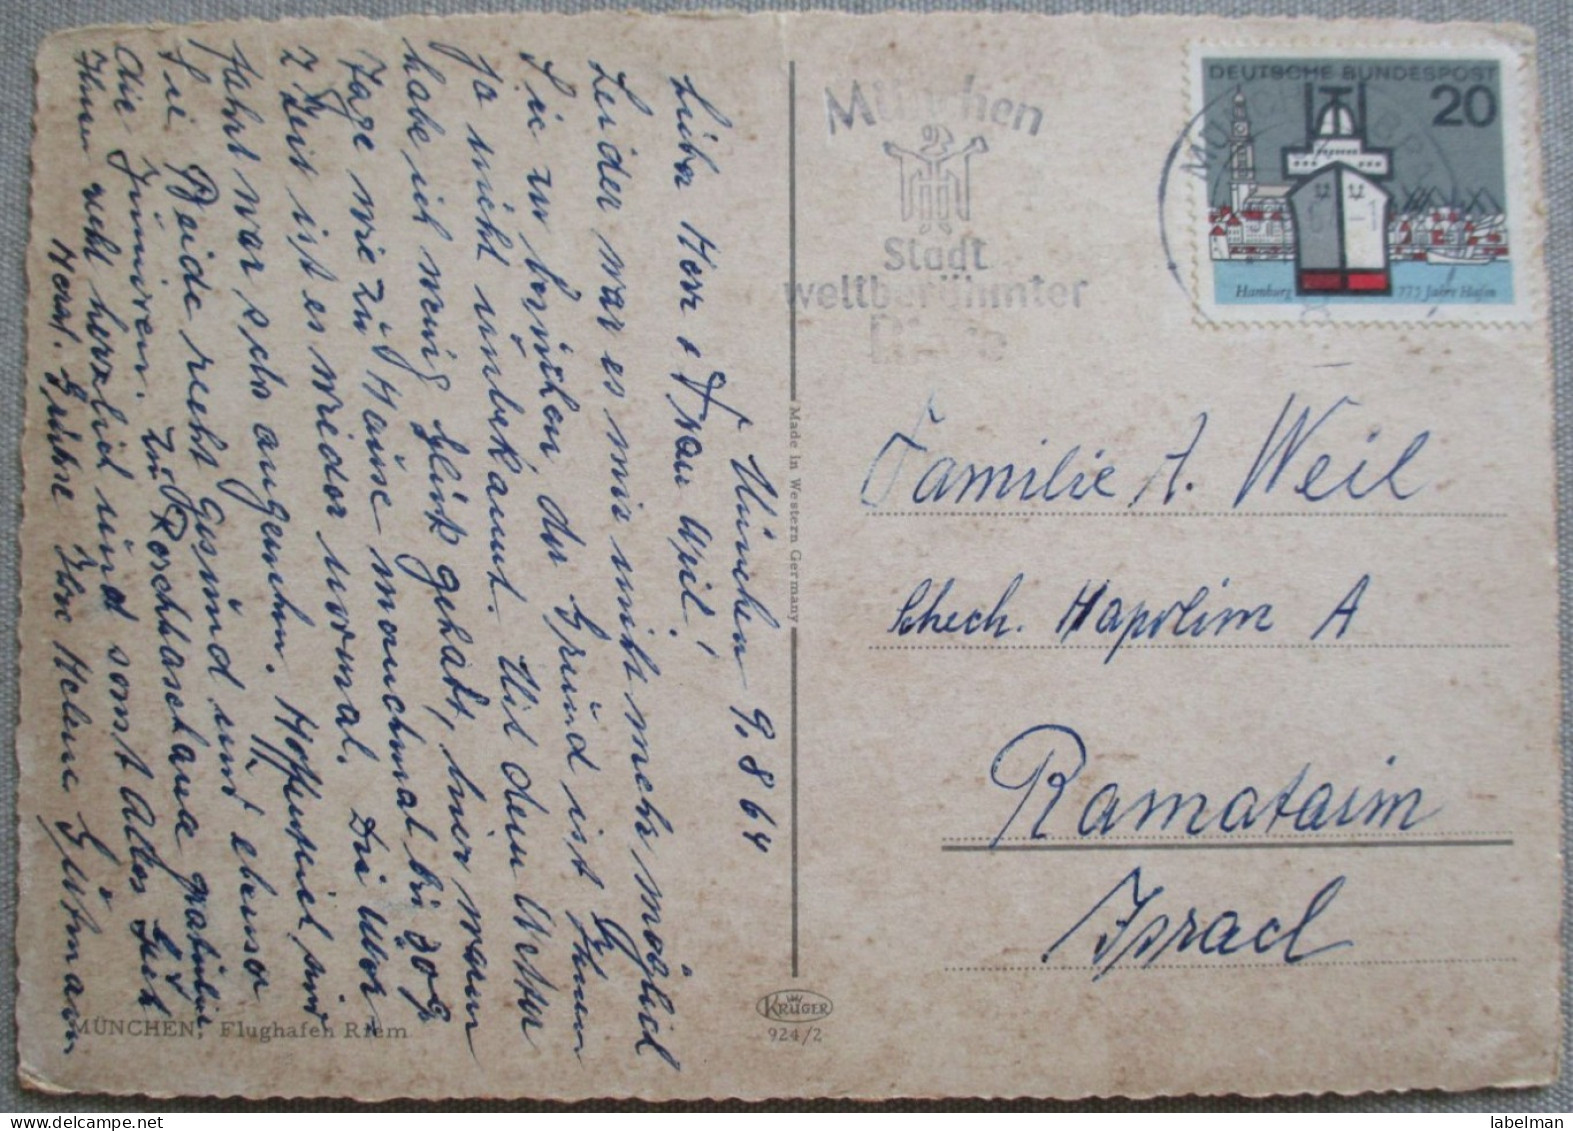 München 9.8.64
Liebe Herr u. Frau Weil!
Leider war es mir nicht mehr möglich
Sie zu besuchen, der Grund ist Ihnen
ja nicht unbekannt. Mit dem Wetter
habe ich wenig Glück gehabt, hier waren
Tage wie zu Hause manchmal bis 30 g
z Zeit ist es wieder normal. Die
fahrt war sehr angenehm. Hoffentlich sind
Sie Beide recht gesund und ebenso
die Jüngeren. Zu Roschhaschana gratuliere
Ihnen recht herzlich und sonst Alles Gute
Grüße Ihre Helene Gutmann
MÜNCHEN, Flughafen Riem
Made in Western Germany
KRÜGER
924/2
München
Stadt
weltberühmter
DEUTSCHE BUNDESPOST
20
Hamburg
775 Jahre Hafen
Familie A. Weil
Schech. Hapolim A
Ramataim
Israel
labelman
delcampe.net